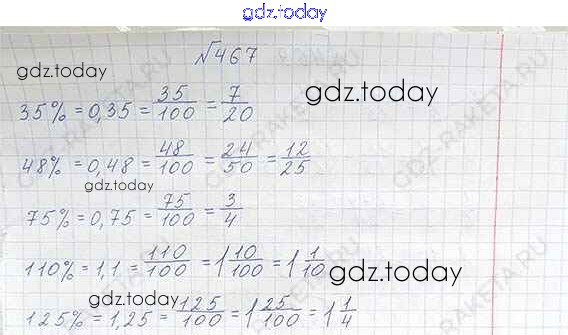 gdz.today
№467
gdz.today
35% = 0,35 = 35/100 = 7/20
gdz.today
48% = 0,48 = 48/100 = 24/50 = 12/25
gdz.today
75% = 0,75 = 75/100 = 3/4
110% = 1,1 = 110/100 = 1 10/100 = 1 1/10
gdz.today
gdz.today
125% = 1,25 = 125/100 = 1 25/100 = 1 1/4
GDZ-RAKETA.RU